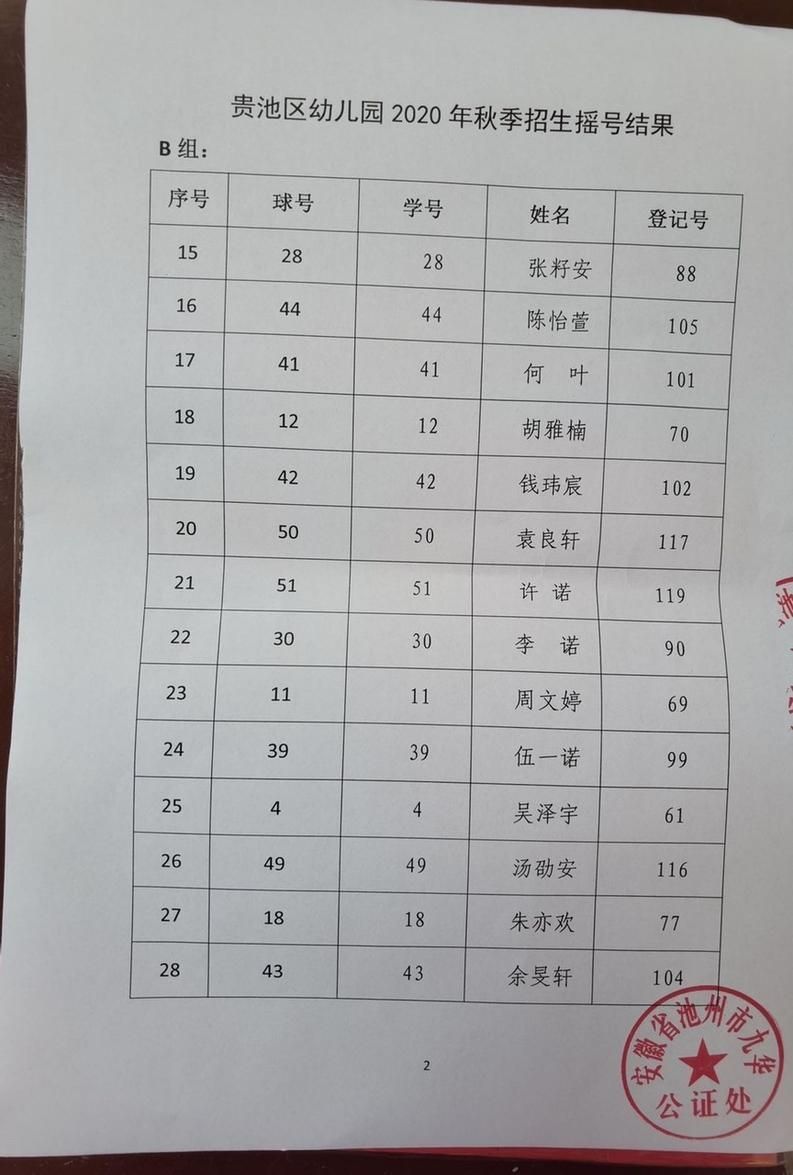 贵池区幼儿园 2020 年秋季招生摇号结果
B 组：
序号 球号 学号 姓名 登记号
15 28 28 张籽安 88
16 44 44 陈怡萱 105
17 41 41 何 叶 101
18 12 12 胡雅楠 70
19 42 42 钱玮宸 102
20 50 50 袁良轩 117
21 51 51 许 诺 119
22 30 30 李 诺 90
23 11 11 周文婷 69
24 39 39 伍一诺 99
25 4 4 吴泽宇 61
26 49 49 汤劭安 116
27 18 18 朱亦欢 77
28 43 43 余旻轩 104
安徽省池州市九华
公证处
2